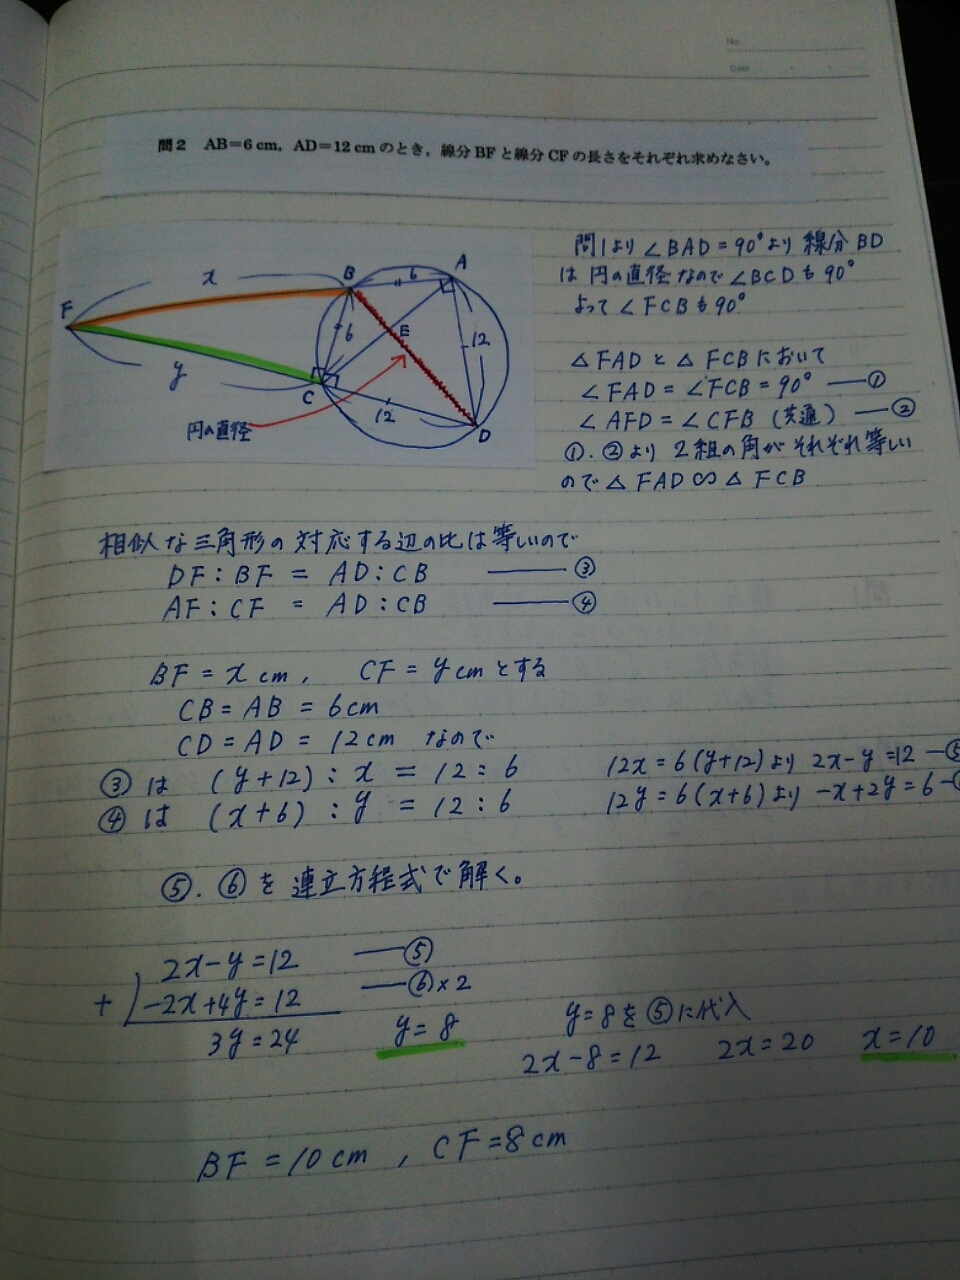 No.
Date
問2 AB=6 cm, AD=12 cm のとき，線分 BF と線分 CF の長さをそれぞれ求めなさい。
問1より ∠BAD=90°より 線分BD
は 円の直径なので ∠BCDも90°
よって∠FCBも90°
x
B
6
A
F
6
E
12
y
C
12
D
円の直径
△FADと△FCBにおいて
∠FAD=∠FCB=90° ――①
∠AFD=∠CFB (共通) ――②
①.②より 2組の角が それぞれ等しい
ので△FAD∽△FCB
相似な三角形の対応する辺の比は等しいので
DF:BF = AD:CB ――③
AF:CF = AD:CB ――④
BF=xcm, CF=ycmとする
CB=AB=6cm
CD=AD=12cm なので
③は (y+12):x=12:6 12x=6(y+12)より 2x-y=12―⑤
④は (x+6):y=12:6 12y=6(x+6)より -x+2y=6―
⑤.⑥を連立方程式で解く。
2x-y=12 ――⑤
+ -2x+4y=12 ――⑥×2
3y=24 y=8
y=8を⑤に代入
2x-8=12 2x=20 x=10
BF=10cm , CF=8cm